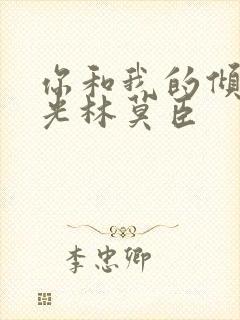 你和我的倾
光林莫臣
李忠卿